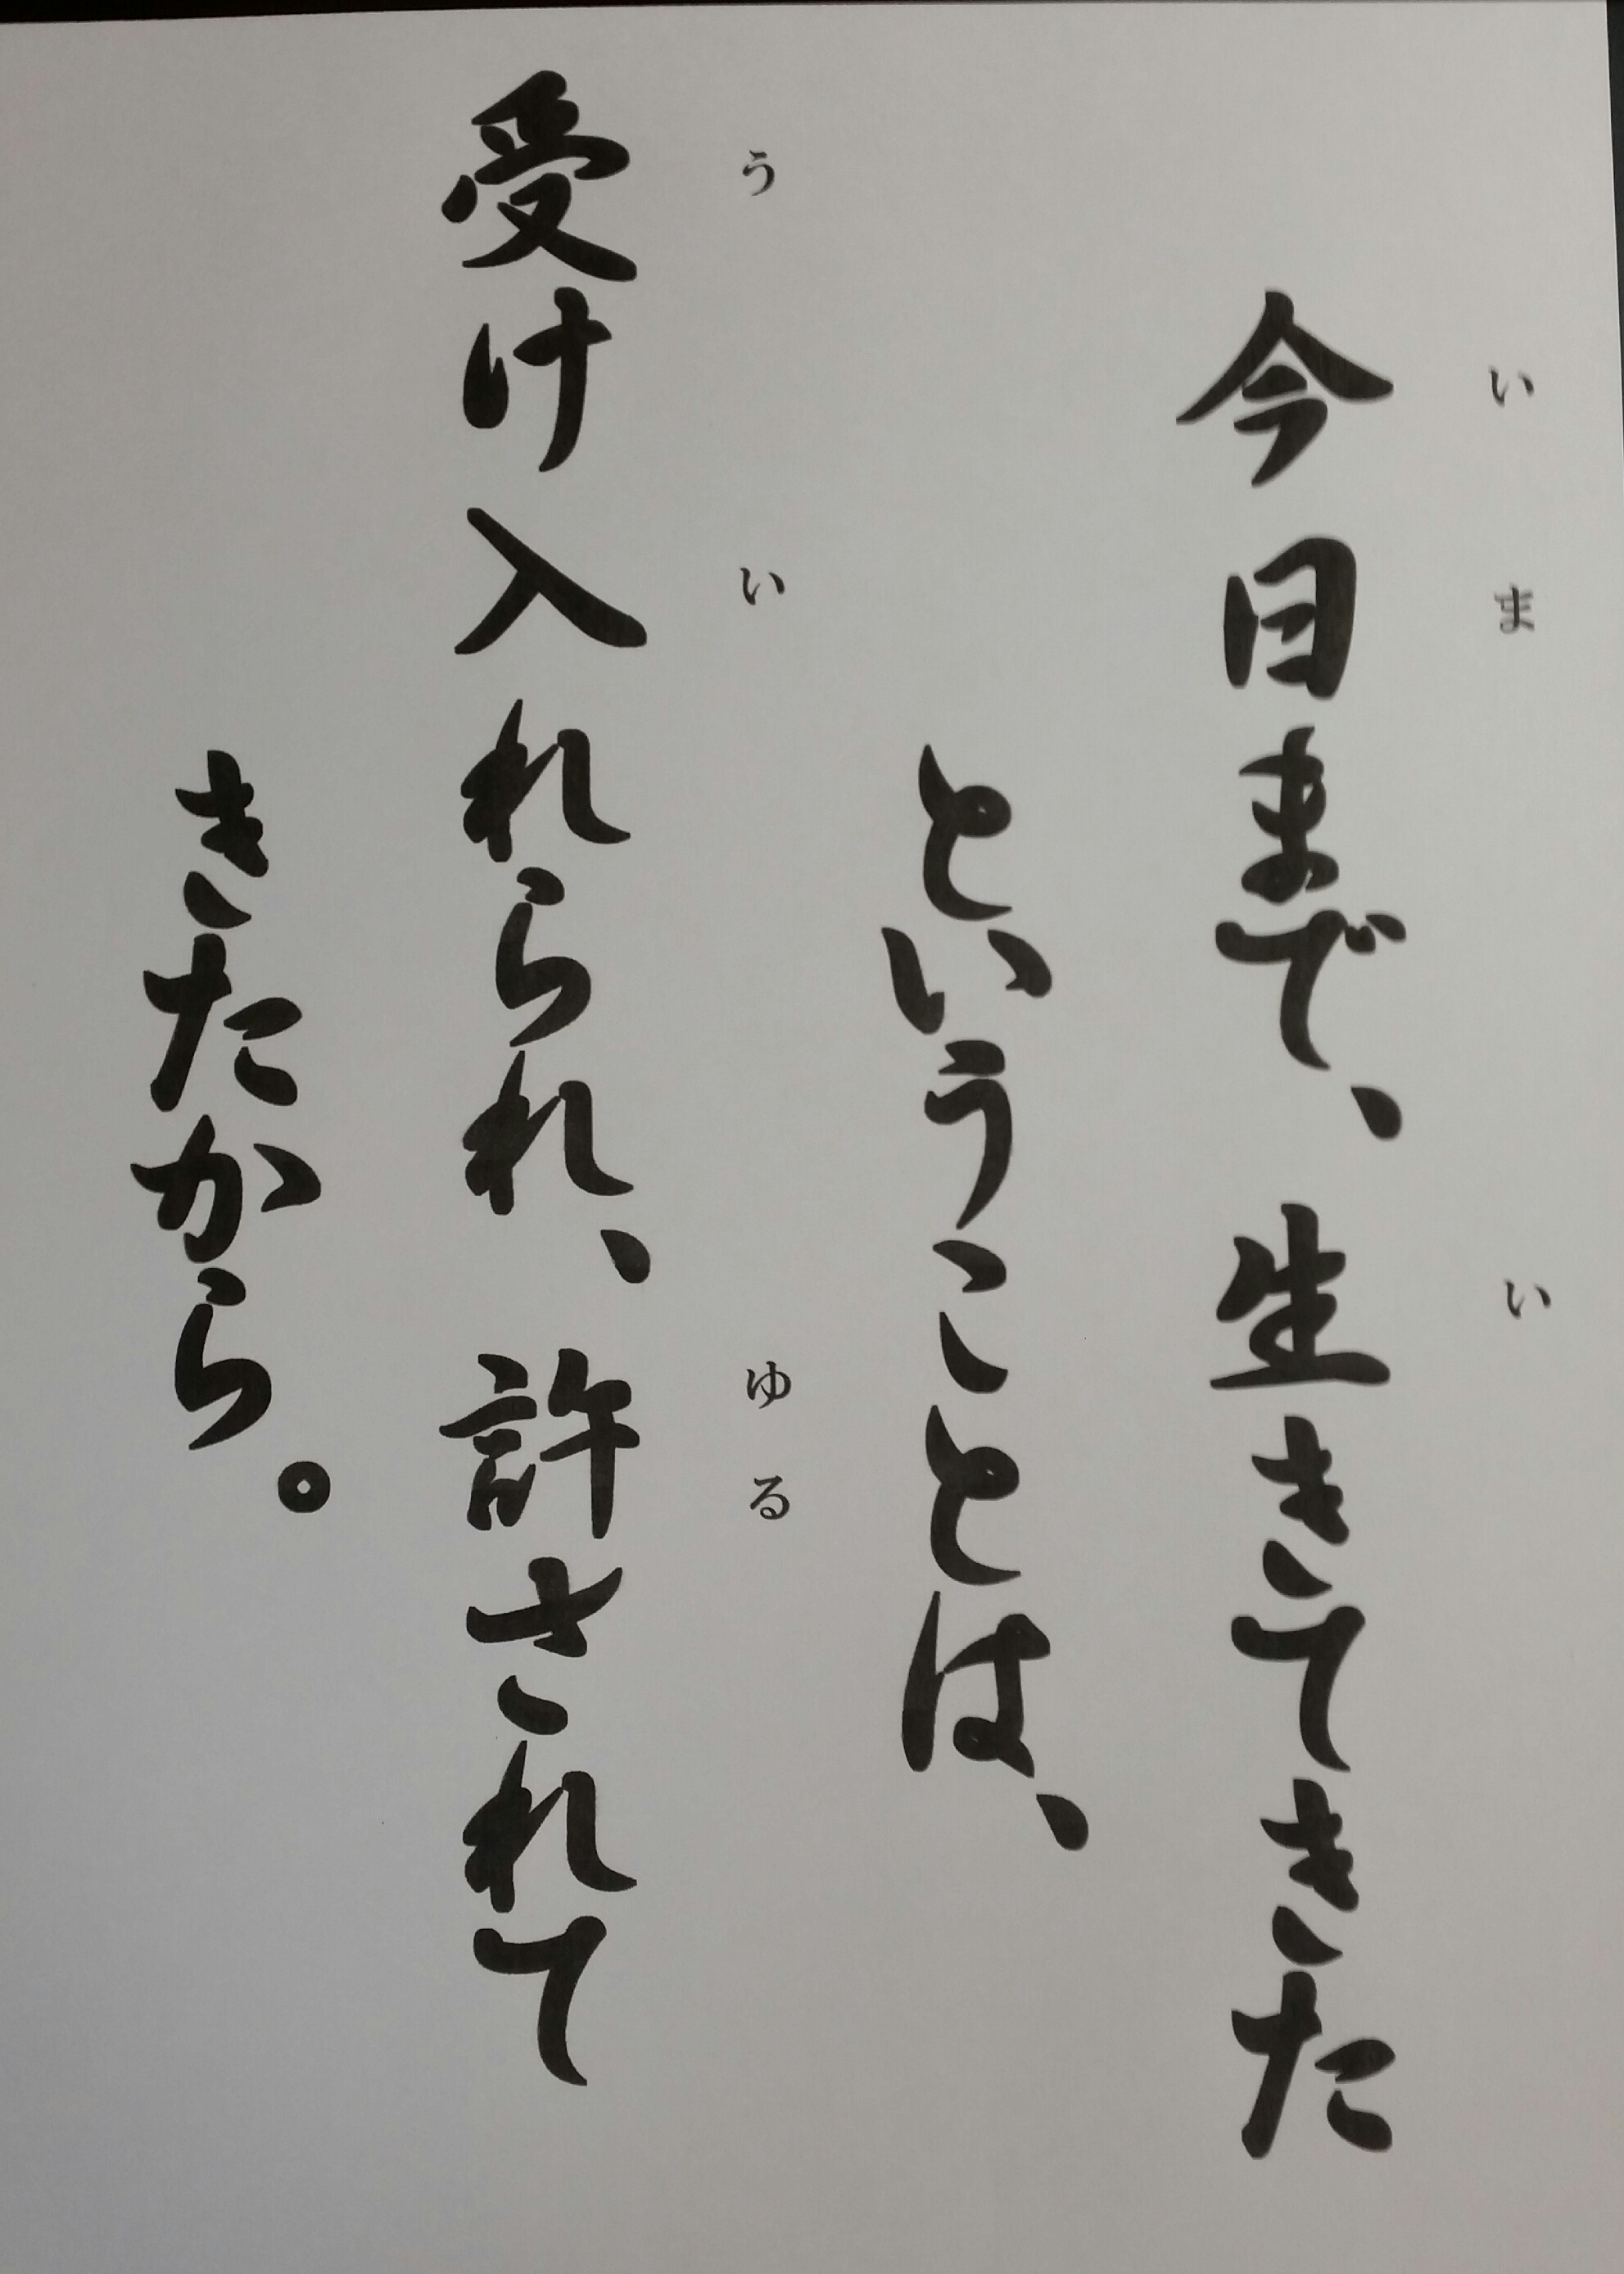 今日まで、生きてきた
ということは、
受け入れられ、許されて
きたから。
いま
い
う
い
ゆる